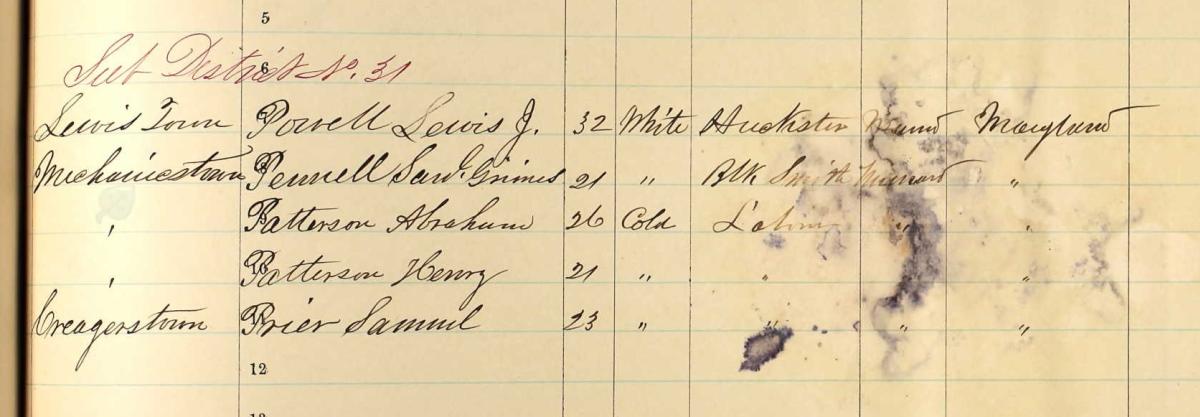 5
Sub District No. 31
6
Lewis Town Powell Lewis J. 32 White Huckster Maryland
Mechanicstown Pennell Grimes 21 " Blk Smith Married "
" Patterson Abraham 26 Cold Labor " "
" 10 Patterson Henry 21 " " "
Creagerstown Prier Samuel 23 " " " "
12
13